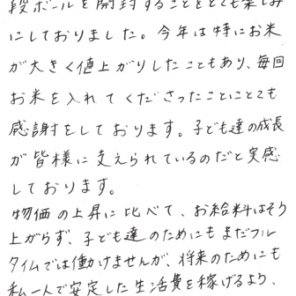 段ボールを開封することをとても楽しみ
にしておりました。今年は特にお米
が大きく値上がりしたこともあり、毎回
お米を入れてくださったことにとても
感謝をしております。子ども達の成長
が皆様に支えられているのだと実感
しております。
物価の上昇に比べて、お給料はそう
上がらず、子ども達のためにもまだフル
タイムでは働けませんが、将来のためにも
私一人で安定した生活費を稼げるよう、